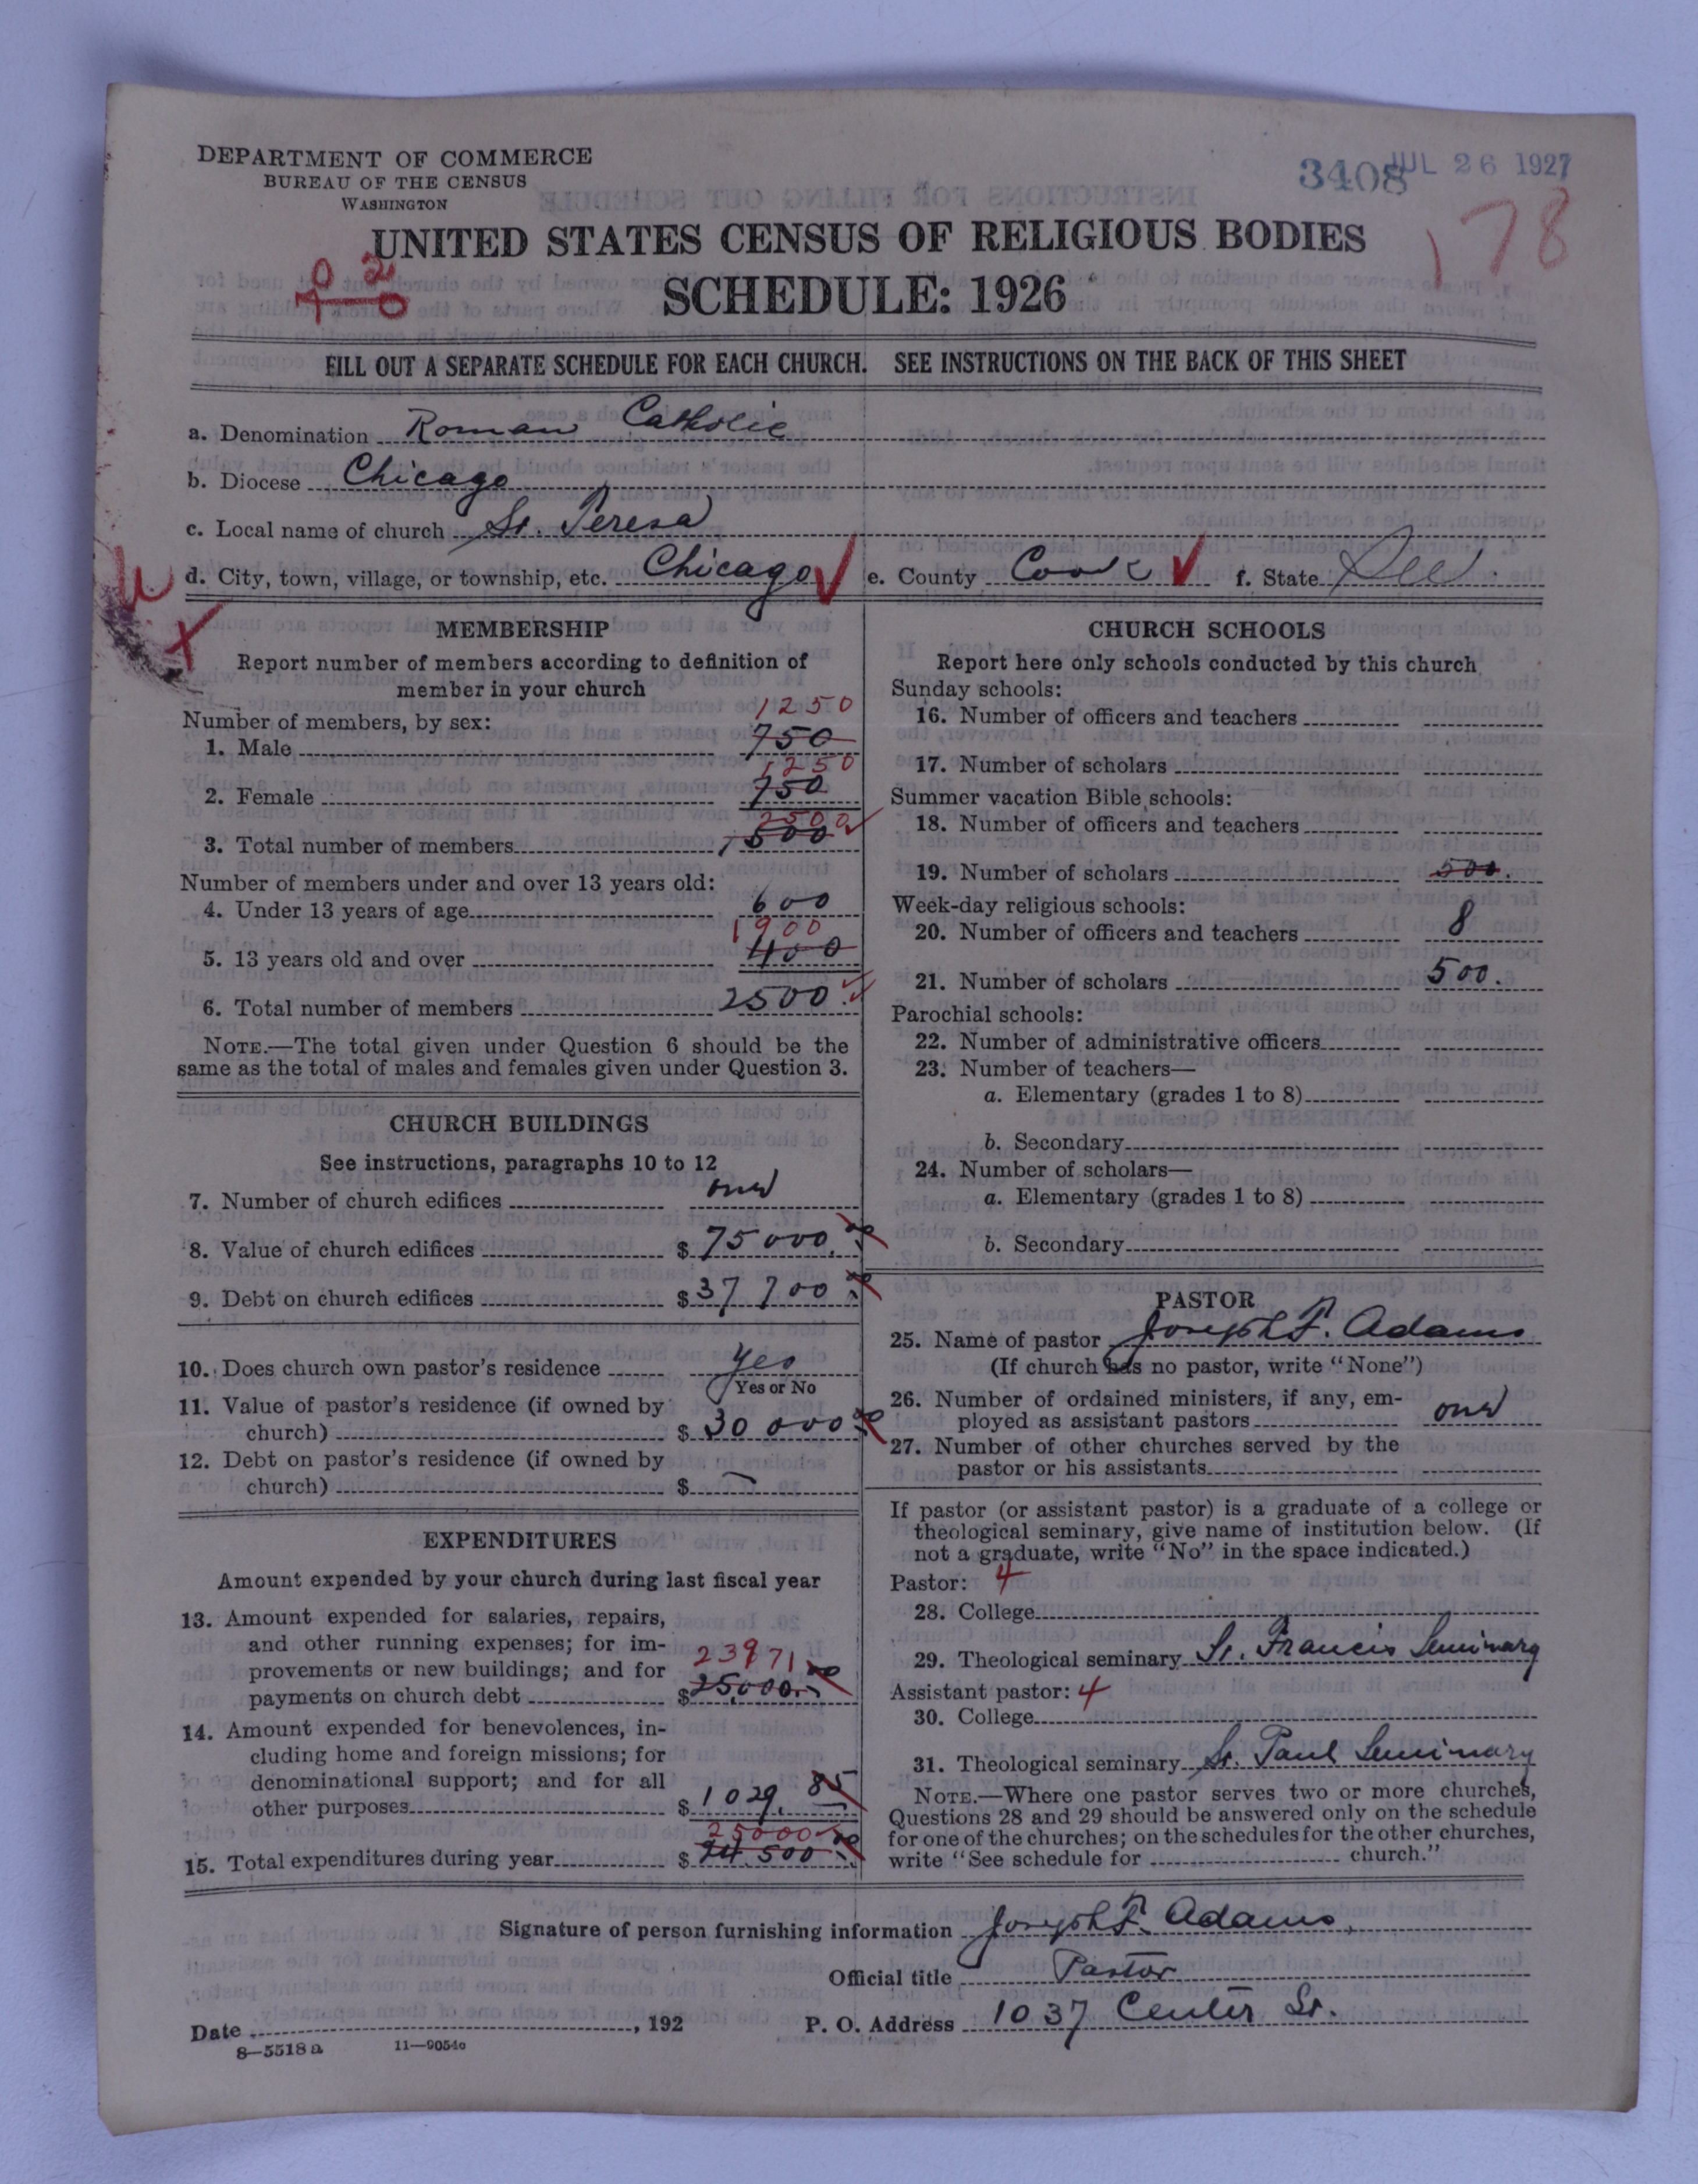 DEPARTMENT OF COMMERCE
BUREAU OF THE CENSUS
WASHINGTON
3408
JUL 26 1927
178
UNITED STATES CENSUS OF RELIGIOUS BODIES
SCHEDULE: 1926
FILL OUT A SEPARATE SCHEDULE FOR EACH CHURCH. SEE INSTRUCTIONS ON THE BACK OF THIS SHEET
a. Denomination Roman Catholic
b. Diocese Chicago
c. Local name of church St. Teresa
d. City, town, village, or township, etc. Chicago e. County Cook f. State Ill.
MEMBERSHIP
Report number of members according to definition of
member in your church
Number of members, by sex:
1250
1. Male 750
1250
2. Female 750
2500
3. Total number of members 1500
Number of members under and over 13 years old:
4. Under 13 years of age 600
1900
5. 13 years old and over 400
6. Total number of members 2500.
NOTE.—The total given under Question 6 should be the
same as the total of males and females given under Question 3.
CHURCH BUILDINGS
See instructions, paragraphs 10 to 12
7. Number of church edifices one
8. Value of church edifices $ 75000.00
9. Debt on church edifices $ 37700.00
10. Does church own pastor's residence Yes
Yes or No
11. Value of pastor's residence (if owned by
church) $ 30000.00
12. Debt on pastor's residence (if owned by
church) $ —
EXPENDITURES
Amount expended by your church during last fiscal year
13. Amount expended for salaries, repairs,
and other running expenses; for im-
provements or new buildings; and for 23971
payments on church debt $ 25,000.00
14. Amount expended for benevolences, in-
cluding home and foreign missions; for
denominational support; and for all
other purposes $ 1029.85
25000
15. Total expenditures during year $ 24500.00
CHURCH SCHOOLS
Report here only schools conducted by this church
Sunday schools:
16. Number of officers and teachers
17. Number of scholars
Summer vacation Bible schools:
18. Number of officers and teachers
19. Number of scholars 500.
Week-day religious schools:
20. Number of officers and teachers 8
21. Number of scholars 500.
Parochial schools:
22. Number of administrative officers
23. Number of teachers—
a. Elementary (grades 1 to 8)
b. Secondary
24. Number of scholars—
a. Elementary (grades 1 to 8)
b. Secondary
PASTOR
25. Name of pastor Joseph F. Adams
(If church has no pastor, write "None")
26. Number of ordained ministers, if any, em-
ployed as assistant pastors one
27. Number of other churches served by the
pastor or his assistants
If pastor (or assistant pastor) is a graduate of a college or
theological seminary, give name of institution below. (If
not a graduate, write "No" in the space indicated.)
Pastor: 4
28. College
29. Theological seminary St. Francis Seminary
Assistant pastor: 4
30. College
31. Theological seminary St. Paul Seminary
NOTE.—Where one pastor serves two or more churches,
Questions 28 and 29 should be answered only on the schedule
for one of the churches; on the schedules for the other churches,
write "See schedule for church."
Signature of person furnishing information Joseph F. Adams
Official title Pastor
Date , 192 P. O. Address 1037 Center St.
8—5518a 11—9054c